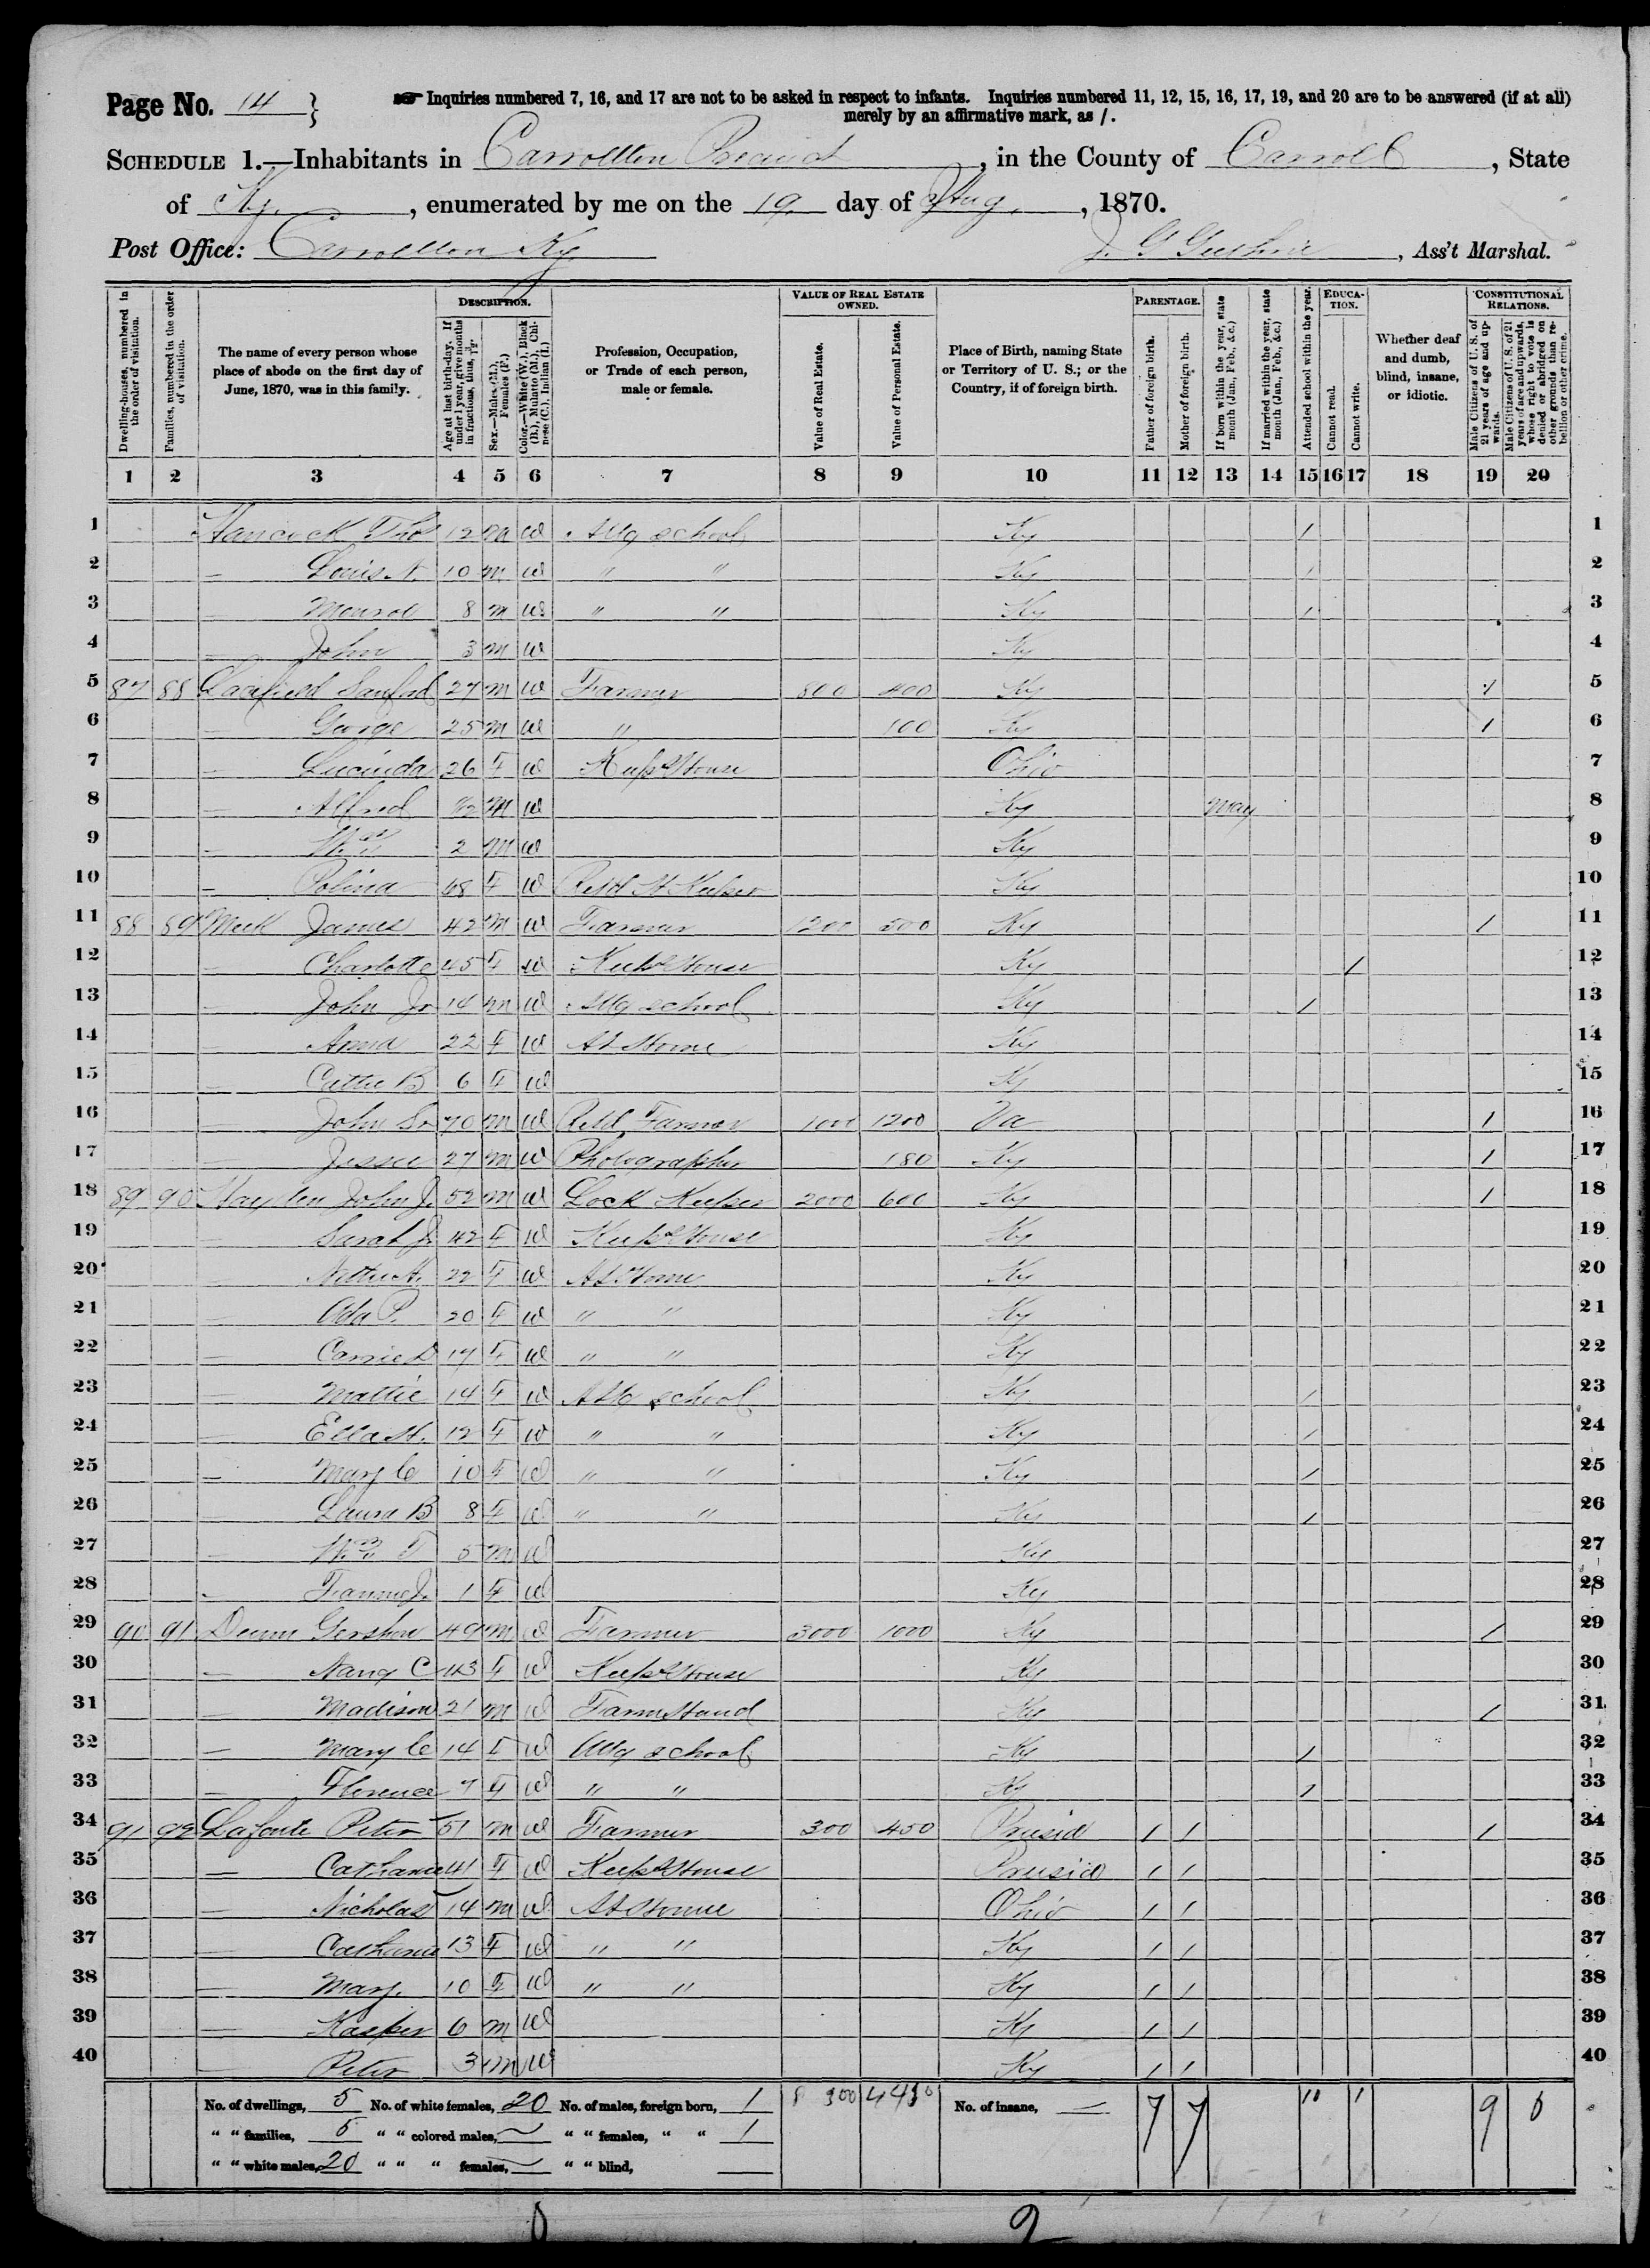 Page No. 14 } Inquiries numbered 7, 16, and 17 are not to be asked in respect to infants. Inquiries numbered 11, 12, 15, 16, 17, 19, and 20 are to be answered (if at all)
merely by an affirmative mark, as /.
SCHEDULE 1.—Inhabitants in Carrollton Precinct, in the County of Carroll, State
of Ky., enumerated by me on the 19 day of Aug, 1870.
Post Office: Carrollton Ky J. G Guthrie, Ass't Marshal.
Dwelling-houses, numbered in the order of visitation.
Families, numbered in the order of visitation.
The name of every person whose place of abode on the first day of June, 1870, was in this family.
DESCRIPTION.
Age at last birth-day. If under 1 year, give months in fractions, thus, 3/12
Sex.—Males (M.), Females (F.)
Color.—White (W.), Black (B.), Mulatto (M.), Chinese (C.), Indian (I.)
Profession, Occupation, or Trade of each person, male or female.
VALUE OF REAL ESTATE OWNED.
Value of Real Estate.
Value of Personal Estate.
Place of Birth, naming State or Territory of U. S.; or the Country, if of foreign birth.
PARENTAGE.
Father of foreign birth.
Mother of foreign birth.
If born within the year, state month (Jan., Feb., &c.)
If married within the year, state month (Jan., Feb., &c.)
Attended school within the year.
EDUCATION.
Cannot read.
Cannot write.
Whether deaf and dumb, blind, insane, or idiotic.
CONSTITUTIONAL RELATIONS.
Male Citizens of U. S. of 21 years of age and upwards.
Male Citizens of U. S. of 21 years of age and upwards, whose right to vote is denied or abridged on other grounds than rebellion or other crime.
1 2 3 4 5 6 7 8 9 10 11 12 13 14 15 16 17 18 19 20
1 Hancock Thos 12 m W Attg school Ky / 1
2 — Louis N. 10 m W " " Ky / 2
3 — Monroe 8 m W " " Ky / 3
4 — John 3 m W Ky 4
5 87 88 Sanford 27 m W Farmer 800 400 Ky / 5
6 — George 25 m W " 100 Ky / 6
7 — Lucinda 26 F W Keeps House Ohio 7
8 — Alfred m W Ky May 8
9 — Wm 2 m W Ky 9
10 — Polina 68 F W Retd H Keeper Ky 10
11 88 89 Meek James 42 m W Farmer 1200 500 Ky / 11
12 — Charlotte 45 F W Keeps House Ky / 12
13 — John Jr 14 m W Attg school Ky / 13
14 — Anna 22 F W At Home Ky 14
15 — Cattie B 6 F W Ky 15
16 — John Sr 70 m W Retd Farmer 1000 1200 Va / 16
17 — Jessee 27 m W Photographer 180 Ky / 17
18 89 90 Hayden John J. 52 m W Lock Keeper 2000 600 Ky / 18
19 — Sarah J. 42 F W Keeps House Ky 19
20 — Nettie A. 22 F W At Home Ky 20
21 — Ada P. 20 F W " " Ky 21
22 — Carrie D 17 F W " " Ky 22
23 — Mattie 14 F W Attg school Ky / 23
24 — Ella H. 12 F W " " Ky / 24
25 — Mary C 10 F W " " Ky / 25
26 — Laura B 8 F W " " Ky / 26
27 — Wm T 5 m W Ky 27
28 — Fannie J. 1 F W Ky 28
29 90 91 Dunn Gershon 49 m W Farmer 3000 1000 Ky / 29
30 — Nancy C 43 F W Keeps House Ky 30
31 — Madison 21 m W Farm Hand Ky / 31
32 — Mary C 14 F W Attg school Ky / 32
33 — Florence 7 F W " " Ky / 33
34 91 92 Lafonte Peter 51 m W Farmer 300 450 Prusia / / / 34
35 — Catharine 41 F W Keeps House Prusia / / 35
36 — Nicholas 14 m W At Home Ohio / / 36
37 — Catharine 13 F W " " Ky / / 37
38 — Mary. 10 F W " " Ky / / 38
39 — Kasper 6 m W Ky / / 39
40 — Peter 3 m W Ky / / 40
No. of dwellings, 5 No. of white females, 20 No. of males, foreign born, 1 8300 4430 No. of insane, — 7 7 10 1 9 0
" " families, 5 " " colored males, — " " females, " " 1
" " white males, 20 " " " females, — " " blind,
2